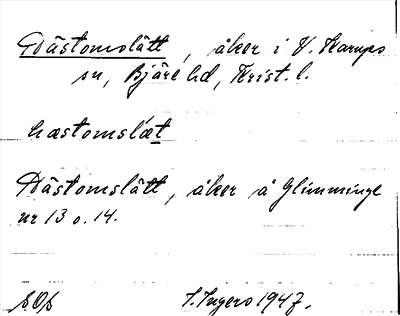 Hästomslätt, åker i V. Karups
sn, Bjäre hd, Krist. l.
hæstomslǽt
Hästomslätt, åker å Glimminge
nr 13 o. 14.
S. Ingers 1947.